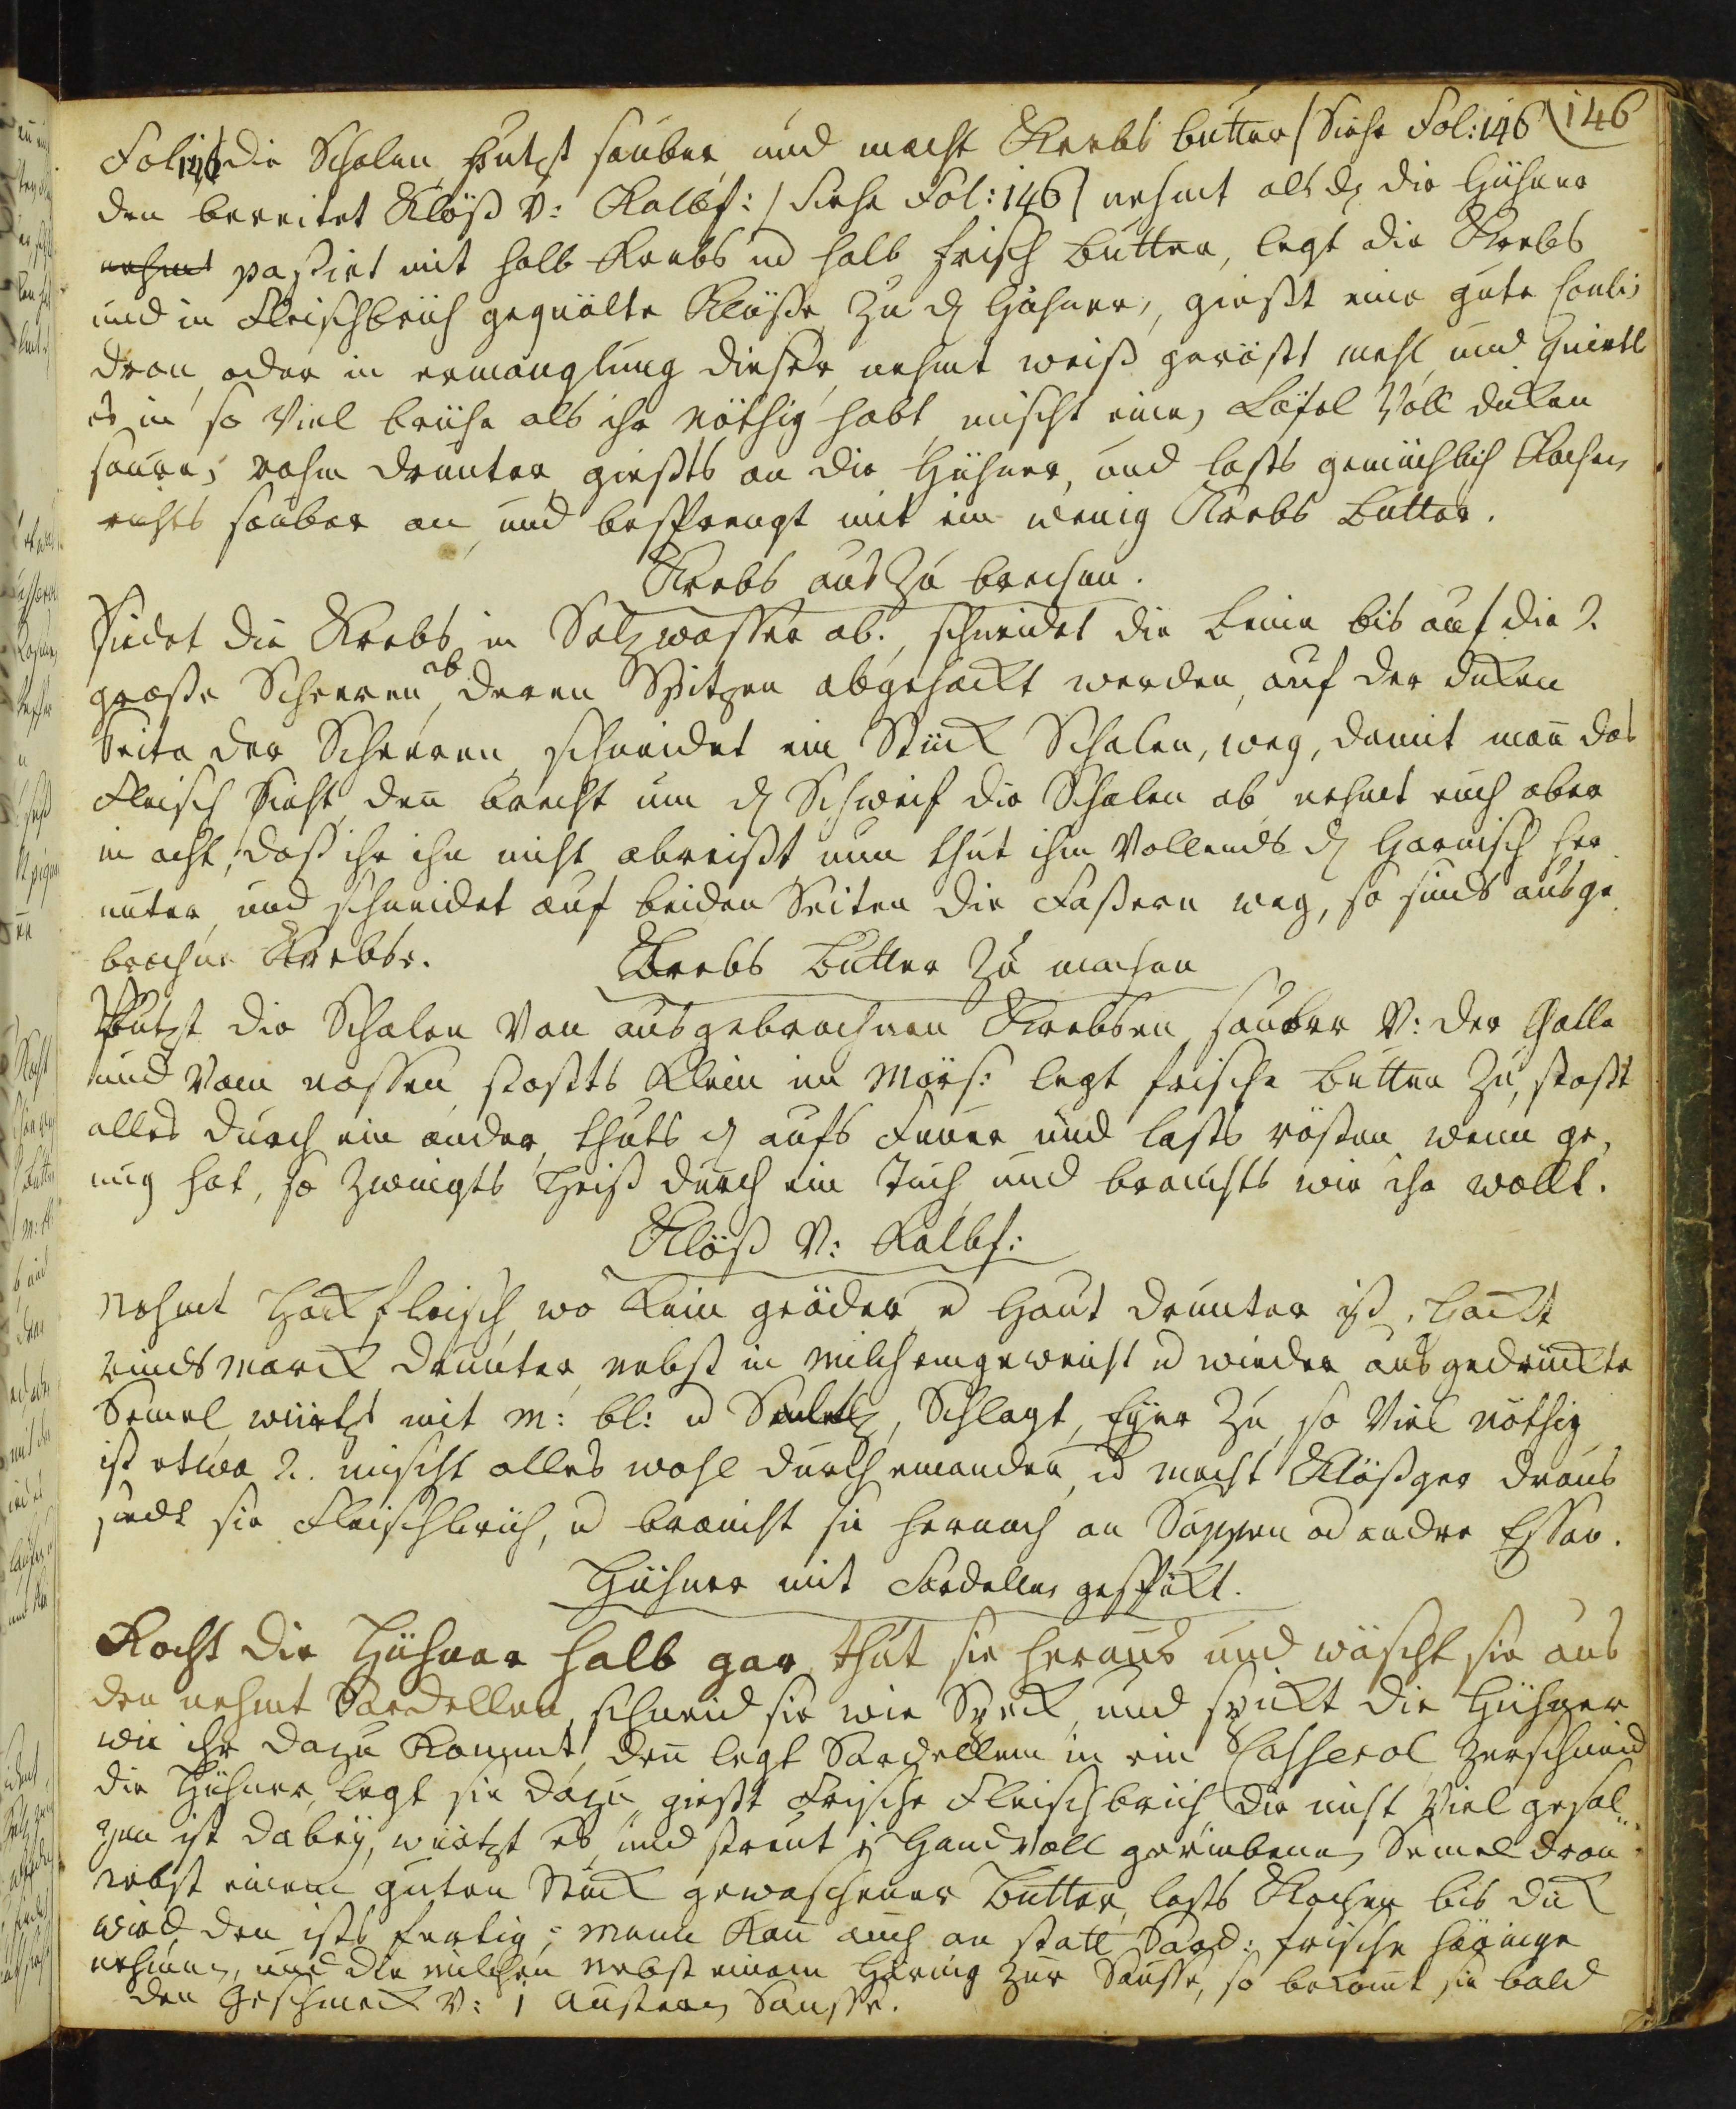 146
Fol: 146 die Schalen, Putzt sauber und macht Krebs butter / Siehe Fol: 146
den bereitet Klöß v: Kalbf: / Siehe Fol: 146 / nehmt als dz die Hühner
nehmt paßirt mit halb Krebs ud halb frisch Butter, legt die Krebs
und in Fleischbrüh gequälte Klöße zu dz Hühner, gießt eine gute Coulis
dran, oder in ermanglung dieser, nehmt weiß geröst mehl, und Quirlt
es in so viel brühe als ihr nöthig habt, mischt einen Löfel Voll duken
sauren rahm drunter, gießts an die Hühner, und lasts gemächlich Kochen,
richts sauber an, und besprengt mit ein wenig Krebs Butter.
Krebs aus zu brechen.
Siedet die Krebs in Saltz wasser ab, schneidet die Beine bis auf die 2.
große Scheeren ab, deren Spitzen abgehackt werden, auf der duken
Seite der Scheeren, schneidet ein Stück Schalen, weg, damit man das
Fleisch sieht, den brecht um dz Schweif die Schalen ab, nehmt euch aber
in acht, daß ihr ihn nicht abreißt nun thut ihm Vollends dz Harnisch her
unter, und schneidet auf beiden Seiten die Faßern weg, so sinds ausge
brochne Krebse.
Krebs Butter zu machen
Putzt die Schalen Von ausgebrochnen Krebsen, sauber v: der Galle
und Vom nassen, stoßts Klein im Mörs: legt frische Butter zu, stoßt
alles durch ein ander, thuts dz aufs Feuer und lasts rösten wenn ge,
nug hat, so zwingts Heiß durch ein Tuch und brauchts wie ihr wollt.
Klöß v: Kalbf:
Nehmt Hackfleisch, wo Kein geäder u Haut drunter ist, Hackt
rinds Marck drunter, nebst in Milch eingeweicht ud wieder ausgedrückte
Semel, würtzt mit M: bl: ud Saltz, Schlagt, Eyer zu, so viel nöthig
ist etwa 2. mischt alles wohl durch einander, ud macht Klößger draus
siedt sie Fleischbrüh, ud braucht sie hernach an Suppen od andre Essen.
Hühner mit Sardellen gespikt.
Kocht die Hühner halb gar, thut sie heraus und wäscht sie aus
den nehmt Sardellen, schneid sie wie Speck, und spickt die Hühner
wie ihr dazu Kommt, den legt Sardellen in ein Casserol, zerschneid
die Hühner, legt sie dazu, gießt Frische Fleischbrüh, die nicht Viel gesal„
zen ist dabey, würtzt es, und streut j Hand voll geriebene, Semel dran
nebst einem guten Stück gewaschener Butter, lasts Kochen bis dick
wird, den ists fertig; Mann Kan auch an statt Sard: frische Häringe
nehmen, und die milchen nebst einem Häring zur Sausse, so bekomt sie bald
den Geschmack v: 1 Austern Sausse.